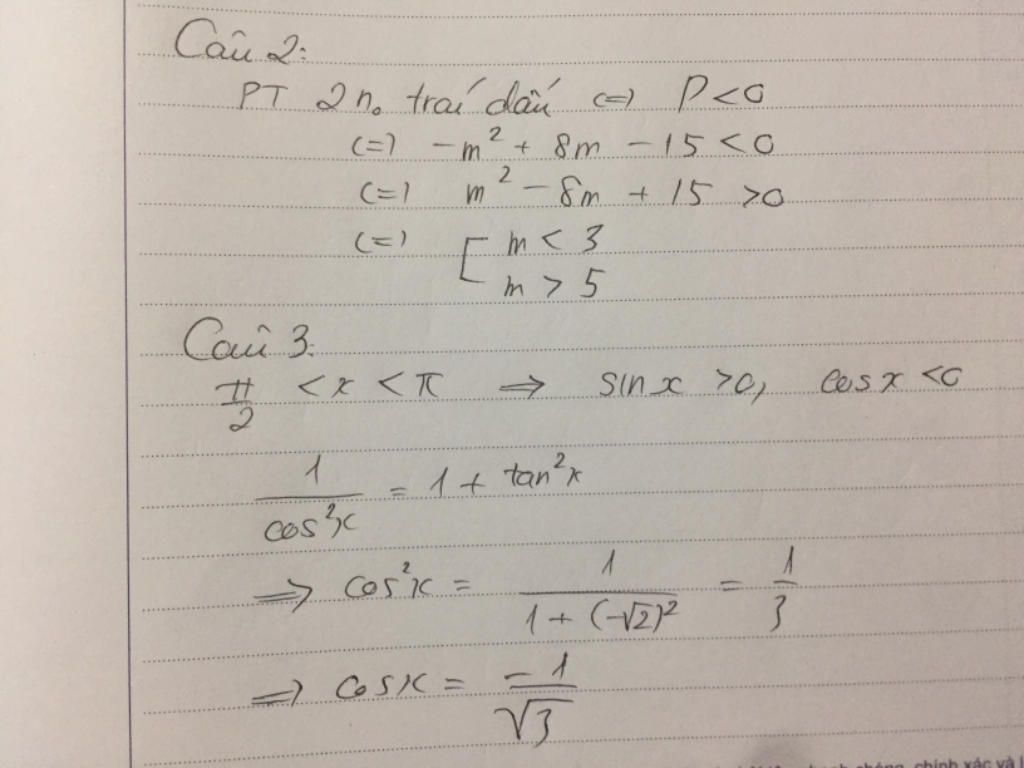 Câu 2:
PT 2 n₀ trái dấu (=) P < 0
(=) -m² + 8m - 15 < 0
(=) m² - 8m + 15 > 0
(=) [ m < 3
m > 5
Câu 3:
π/2 < x < π => sin x > 0, cos x < 0
1/cos²x = 1 + tan²x
=> cos²x = 1/(1 + (-√2)²) = 1/3
=> cos x = -1/√3
chính xác và